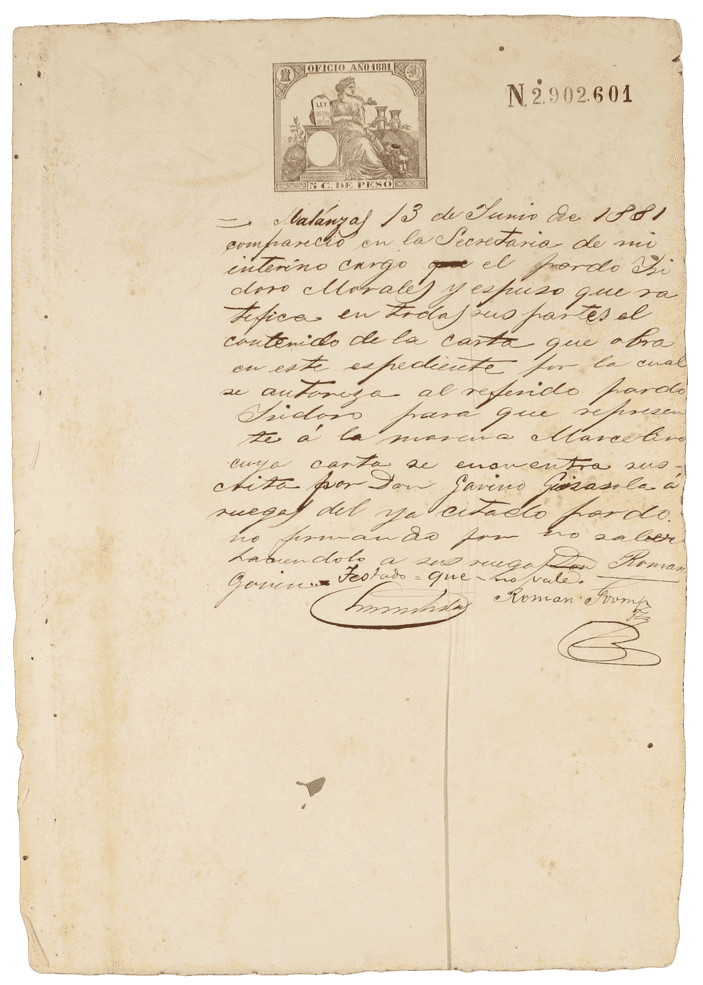 OFICIO AÑO 1881
LEY
5 C. DE PESO
N. 2.902.601
= Matánzas 13 de Junio de 1881
comparecio en la Secretaria de mi
interino cargo que el pardo Isi
doro Morales y espuso que ra
tifica en todas sus partes el
contenido de la carta que obra
en este espediente por la cual
se autoriza al referido pardo
Isidoro para que represen
te á la morena Marcelina
cuya carta se encuentra sus-
crita por Don Gavino Gisasola a
ruegos del ya citado pardo.
no firmando por no saber
haciendolo a sus ruegos Don Roman
Govin = Testado = que = no vale.
Roman